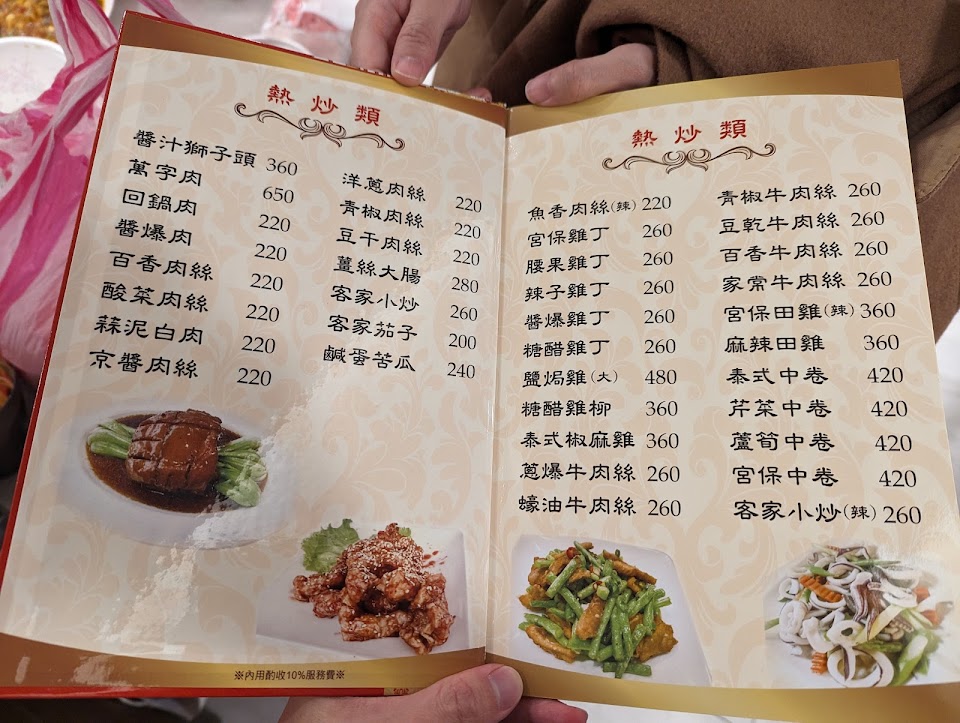 熱炒類
醬汁獅子頭 360
萬字肉 650
回鍋肉 220
醬爆肉 220
百香肉絲 220
酸菜肉絲 220
蒜泥白肉 220
京醬肉絲 220
洋蔥肉絲 220
青椒肉絲 220
豆干肉絲 220
薑絲大腸 280
客家小炒 260
客家茄子 200
鹹蛋苦瓜 240
※內用酌收10%服務費※
熱炒類
魚香肉絲(辣) 220
宮保雞丁 260
腰果雞丁 260
辣子雞丁 260
醬爆雞丁 260
糖醋雞丁 260
鹽焗雞(大) 480
糖醋雞柳 360
泰式椒麻雞 360
蔥爆牛肉絲 260
蠔油牛肉絲 260
青椒牛肉絲 260
豆乾牛肉絲 260
百香牛肉絲 260
家常牛肉絲 260
宮保田雞(辣) 360
麻辣田雞 360
泰式中卷 420
芹菜中卷 420
蘆筍中卷 420
宮保中卷 420
客家小炒(辣) 260